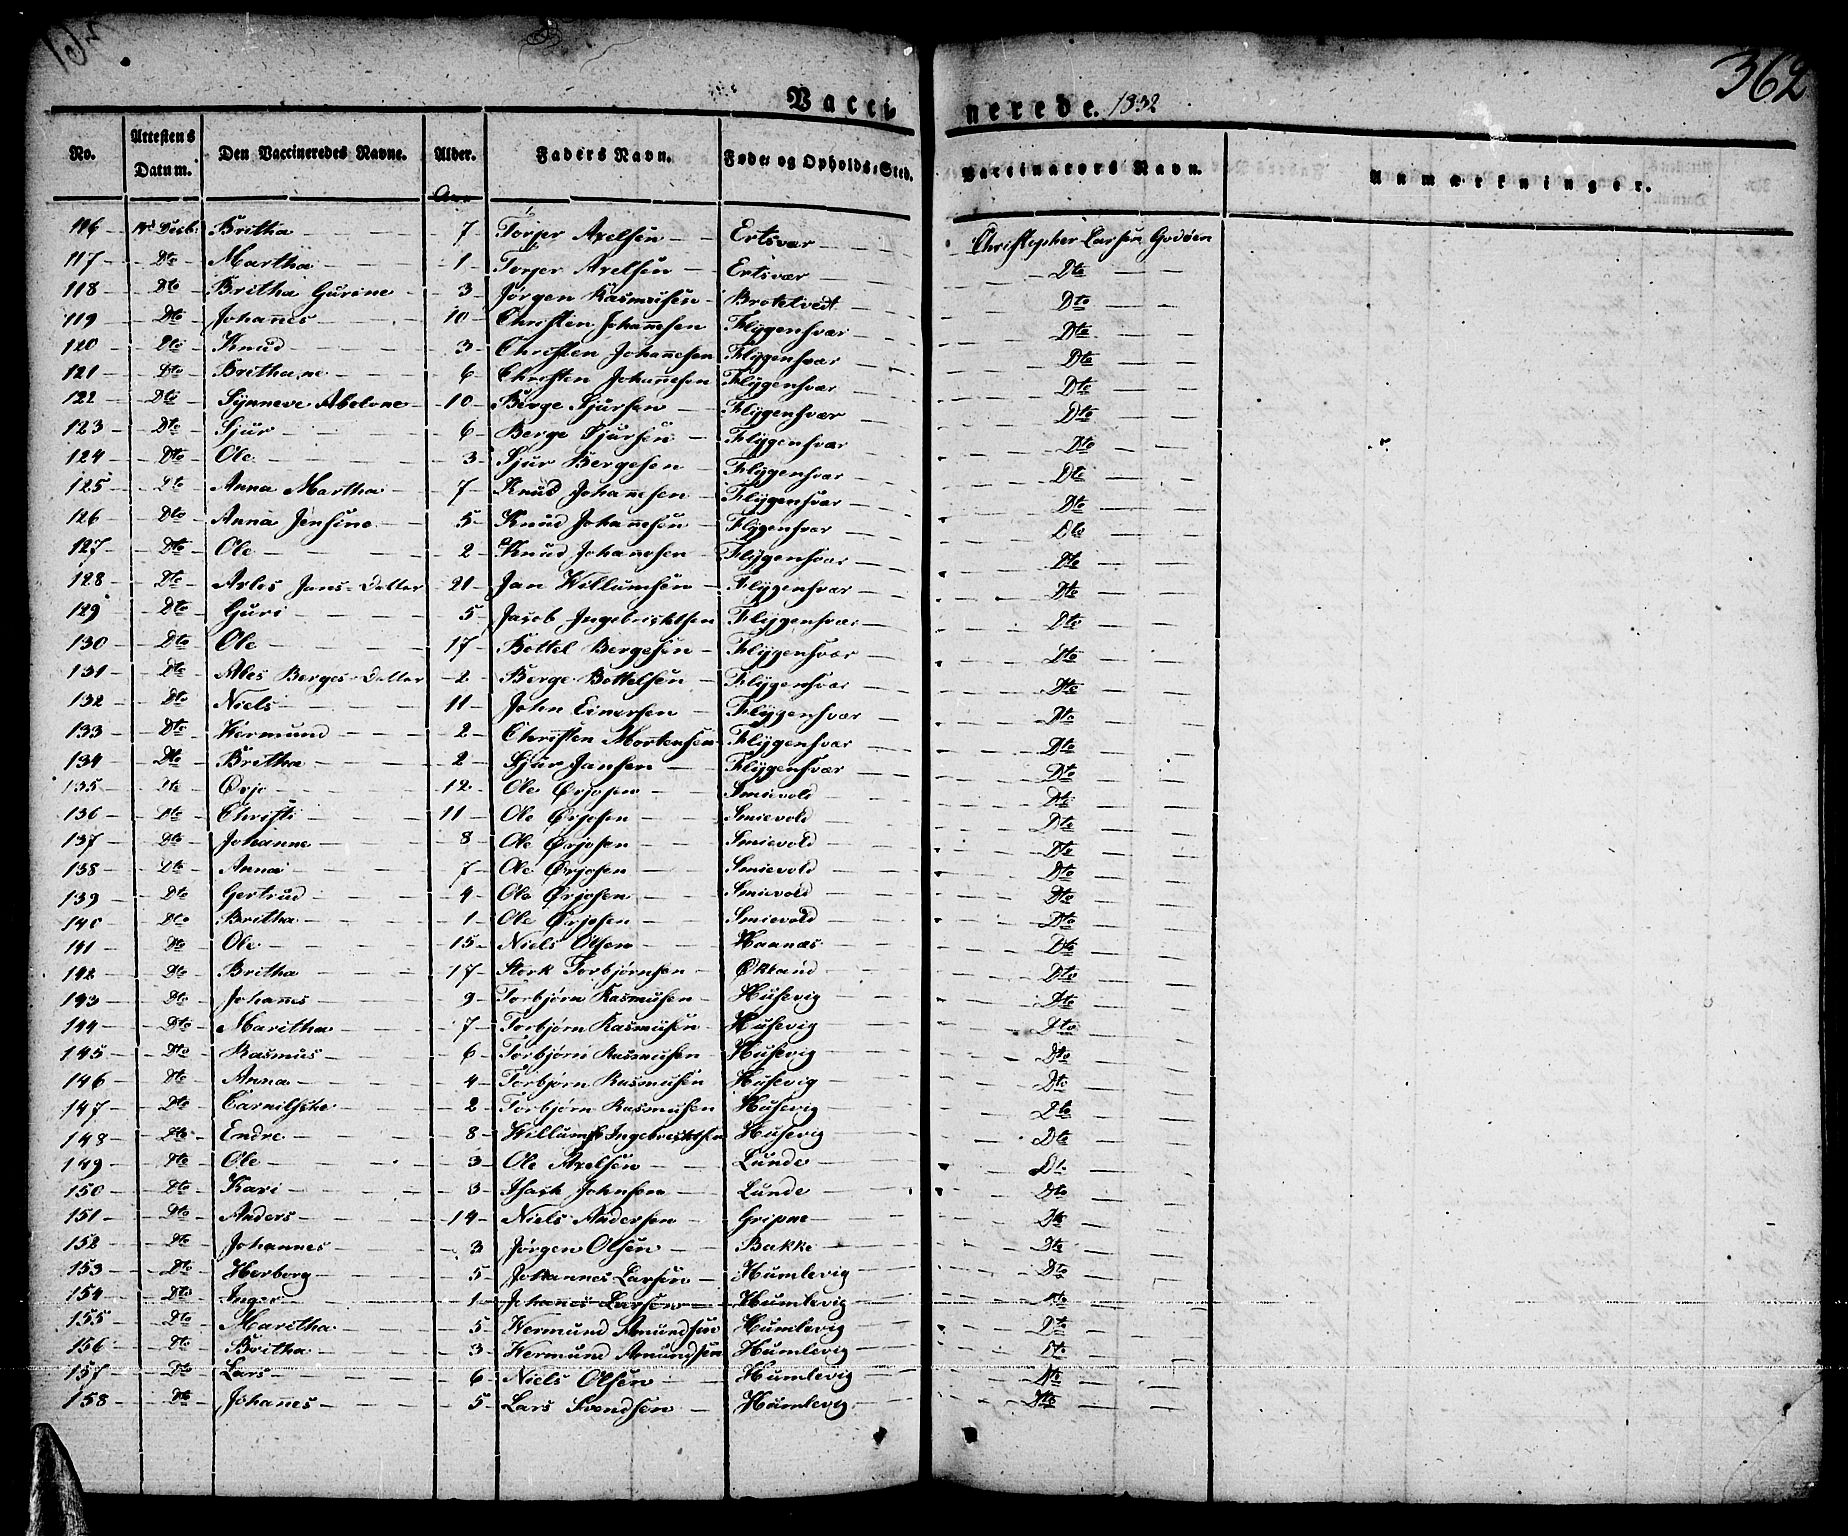 362
Vacci nerede. 1832
No. | Attestens Datum. | Den Vaccineredes Navne. | Alder. | Faders Navn. | Føde- og Opholds-Sted. | Vaccinateurs Navn. | Anmærkninger.
Aar
116 Decb. Britha 7 Torjer Axelsen Ertsvær Christopher Larsen Godøen
117 Dto Martha 1 Torjer Axelsen Ertsvær Dto
118 Dto Britha Gurine 3 Jørgen Rasmusen Brotetvedt Dto
119 Dto Johannes 10 Christen Johannesen Flygensvær Dto
120 Dto Knud 3 Christen Johannesen Flygensvær Dto
121 Dto Brithane 6 Christen Johannesen Flygensvær Dto
122 Dto Synneve Abelone 10 Berge Sjursen Flygensvær Dto
123 Dto Sjur 6 Berge Sjursen Flygensvær Dto
124 Dto Ole 3 Sjur Bergesen Flygensvær Dto
125 Dto Anna Martha 7 Knud Johannesen Flygensvær Dto
126 Dto Anna Jensine 5 Knud Johannesen Flygensvær Dto
127 Dto Ole 2 Knud Johannesen Flygensvær Dto
128 Dto Arles Jans-Datter 21 Jan Willumsen Flygensvær Dto
129 Dto Guri 5 Jacob Ingebricktsen Flygensvær Dto
130 Dto Ole 17 Bottel Bergesen Flygensvær Dto
131 Dto Ales Berges-Datter 2 Berge Bottelsen Flygensvær Dto
132 Dto Niels 11 John Einersen Flygensvær Dto
133 Dto Wermund 2 Christen Mortensen Flygensvær Dto
134 Dto Britha 2 Sjur Jansen Flygensvær Dto
135 Dto Ørjo 12 Ole Ørjosen Smievold Dto
136 Dto Christi 11 Ole Ørjosen Smievold Dto
137 Dto Johanne 8 Ole Ørjosen Smievold Dto
138 Dto Anna 7 Ole Ørjosen Smievold Dto
139 Dto Gertrud 4 Ole Ørjosen Smievold Dto
140 Dto Britha 1 Ole Ørjosen Smievold Dto
141 Dto Ole 15 Niels Olsen Haanæs Dto
142 Dto Britha 17 Stork Torbjørnsen Økland Dto
143 Dto Johannes 9 Torbjørn Rasmusen Husevig Dto
144 Dto Maritha 7 Torbjørn Rasmusen Husevig Dto
145 Dto Rasmus 6 Torbjørn Rasmusen Husevig Dto
146 Dto Anna 4 Torbjørn Rasmusen Husevig Dto
147 Dto 2 Torbjørn Rasmusen Husevig Dto
148 Dto Endre 8 Willum Ingebricktsen Husevig Dto
149 Dto Ole 3 Ole Axelsen Lunde Dto
150 Dto Kari 3 Isack Johnsen Lunde Dto
151 Dto Anders 14 Niels Andersen Gripne Dto
152 Dto Johannes 3 Jørgen Olsen Bakke Dto
153 Dto Herborg 5 Johannes Larsen Humlevig Dto
154 Dto Inger 1 Johannes Larsen Humlevig Dto
155 Dto Maritha 5 Wermund Amundsen Humlevig Dto
156 Dto Britha 3 Wermund Amundsen Humlevig Dto
157 Dto Lars 6 Niels Olsen Humlevig Dto
158 Dto Johannes 5 Lars Svendsen Humlevig Dto